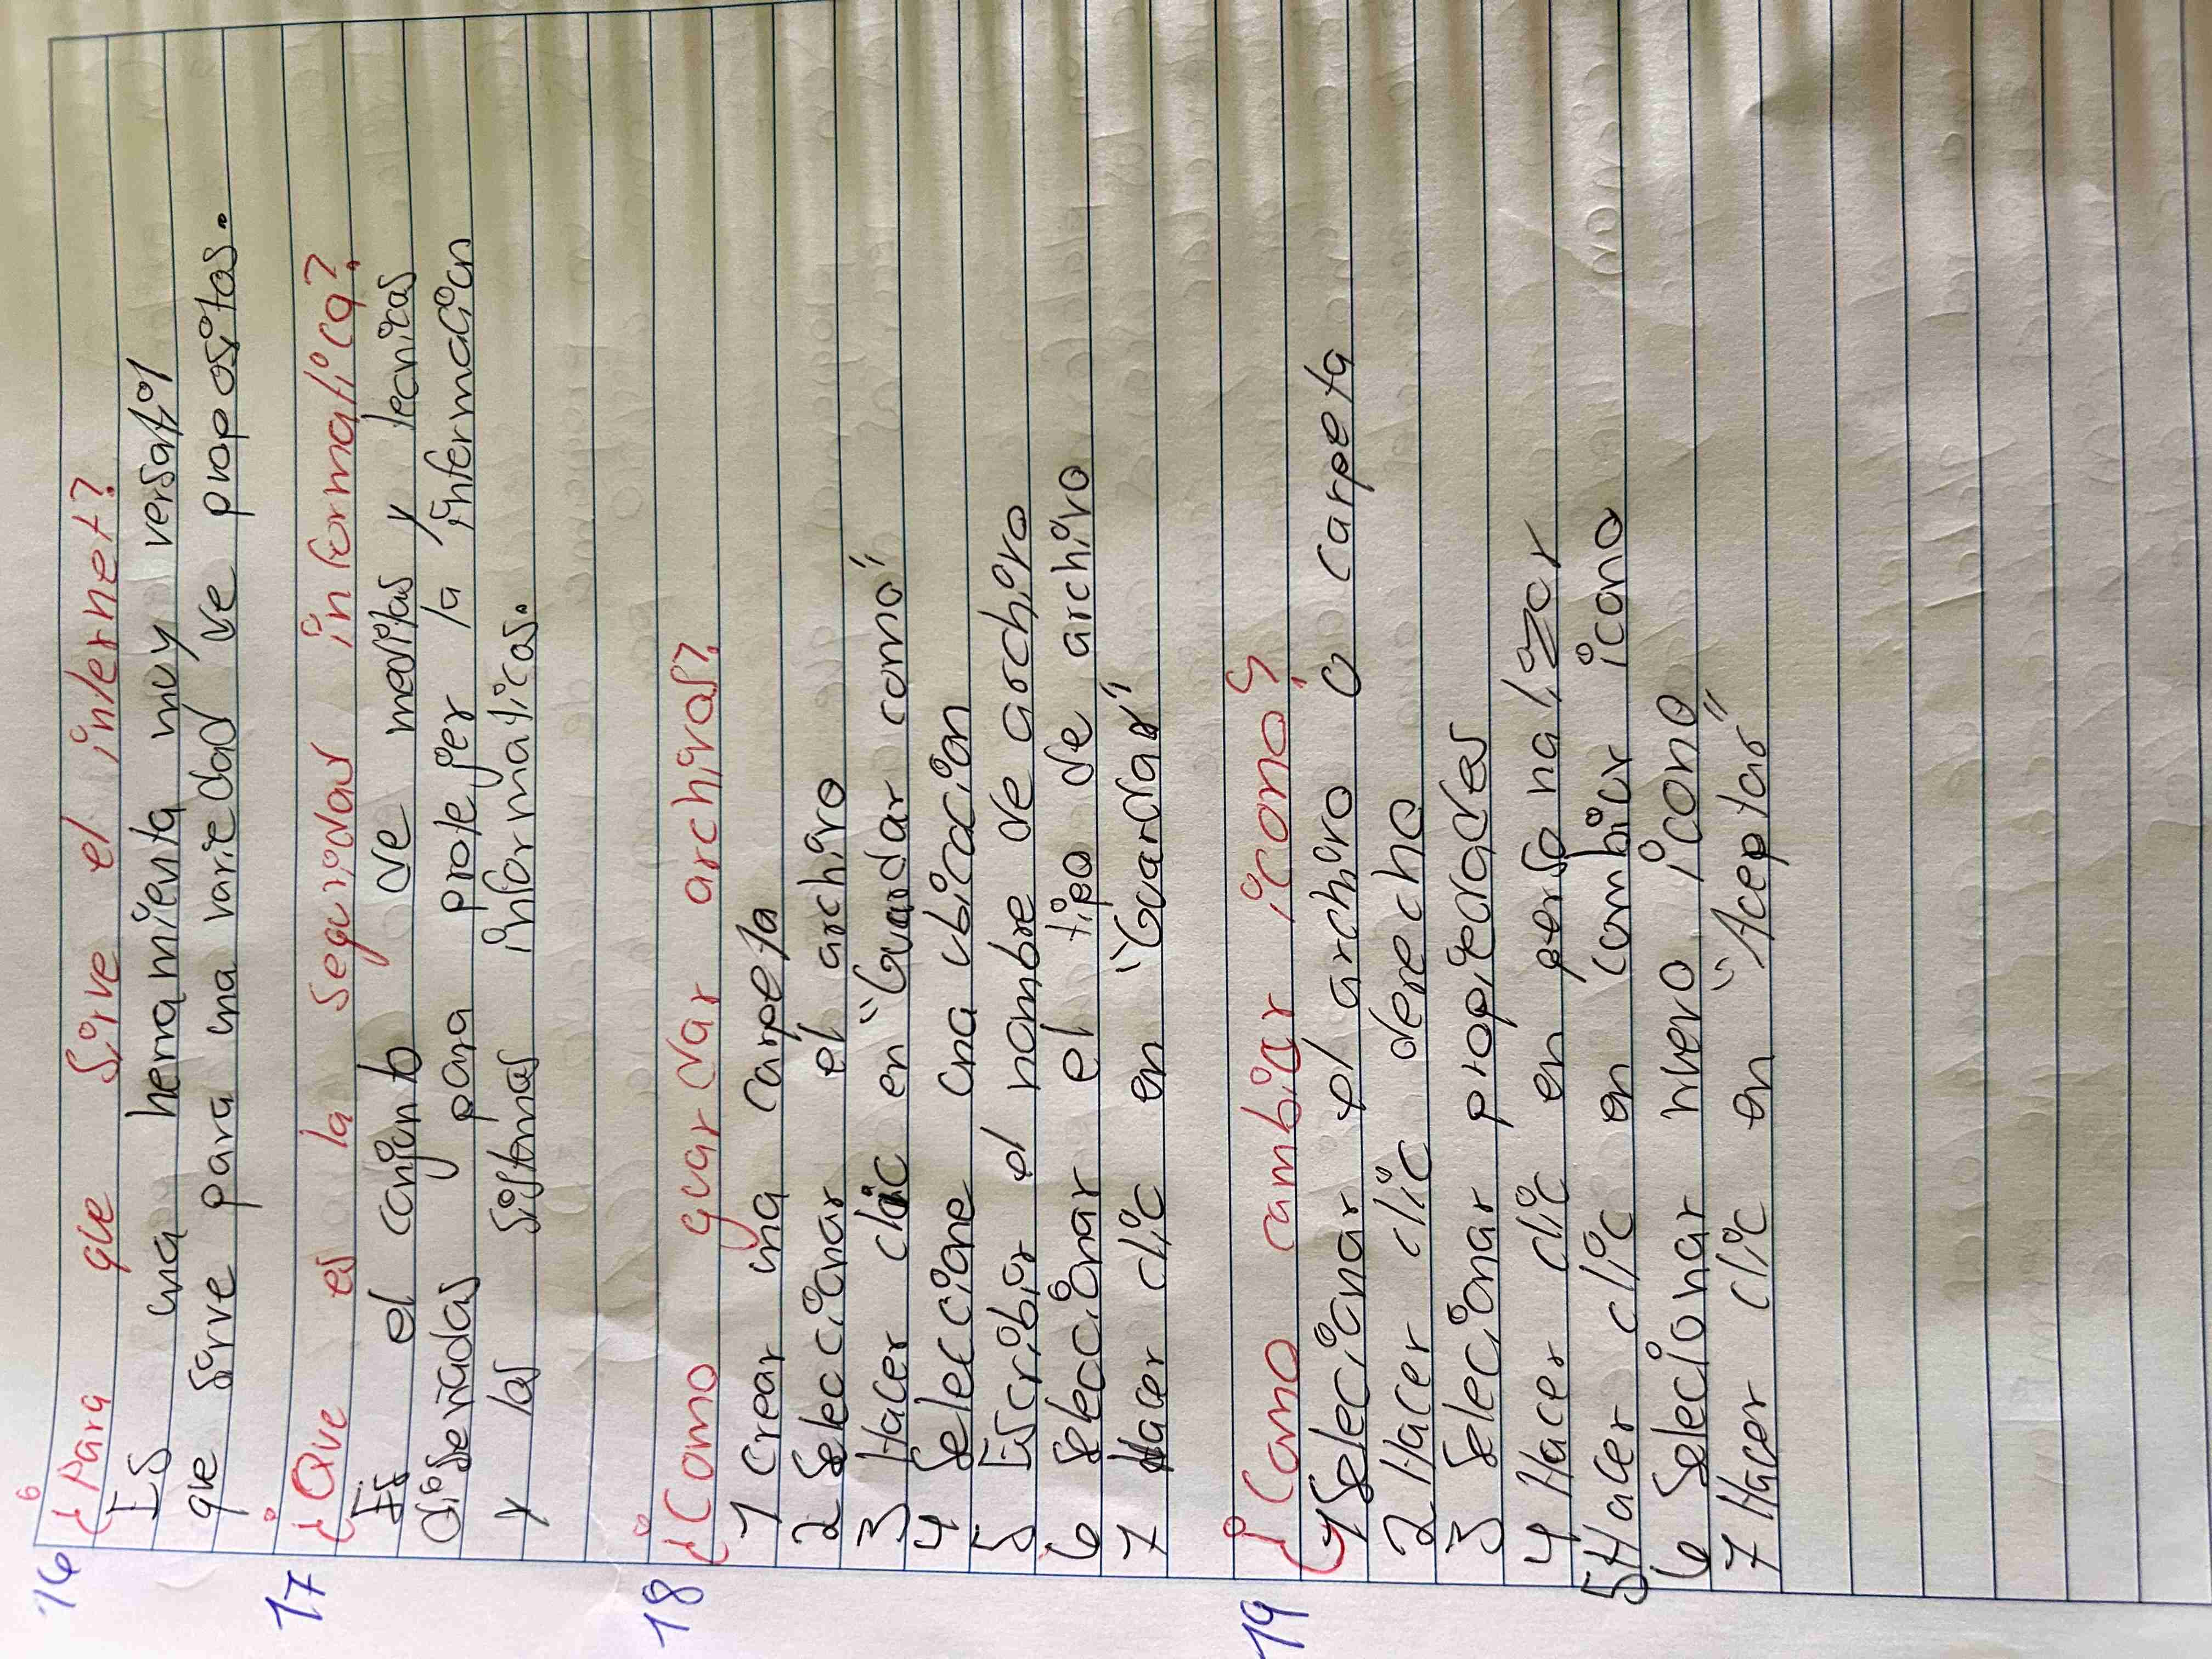 16 ¿Para que Sirve el internet?
ES una herramienta muy versatil
que Sirve para una variedad de propositos.
17 ¿Que es la Seguridad informatica?
Es el conjunto de medidas y tecnicas
diseñadas para protejer la informacion
y los Sistemas informaticos.
18 ¿Como guardar archivos?
1 crear una carpeta
2 Seleccionar el archivo
3 Hacer clic en "Guardar como"
4 Seleccione una ubicacion
5 Escribir el nombre de archivo
6 Seleccionar el tipo de archivo
7 Hacer clic en "Guardar"
19 ¿Como cambiar icono?
1 Selecionar el archivo o carpeta
2 Hacer clic derecho
3 Selecionar propiedades
4 Hacer clic en personalizar
5 Hacer clic en cambiar icono
6 Selecionar nuevo icono
7 Hacer clic en "Aceptar"